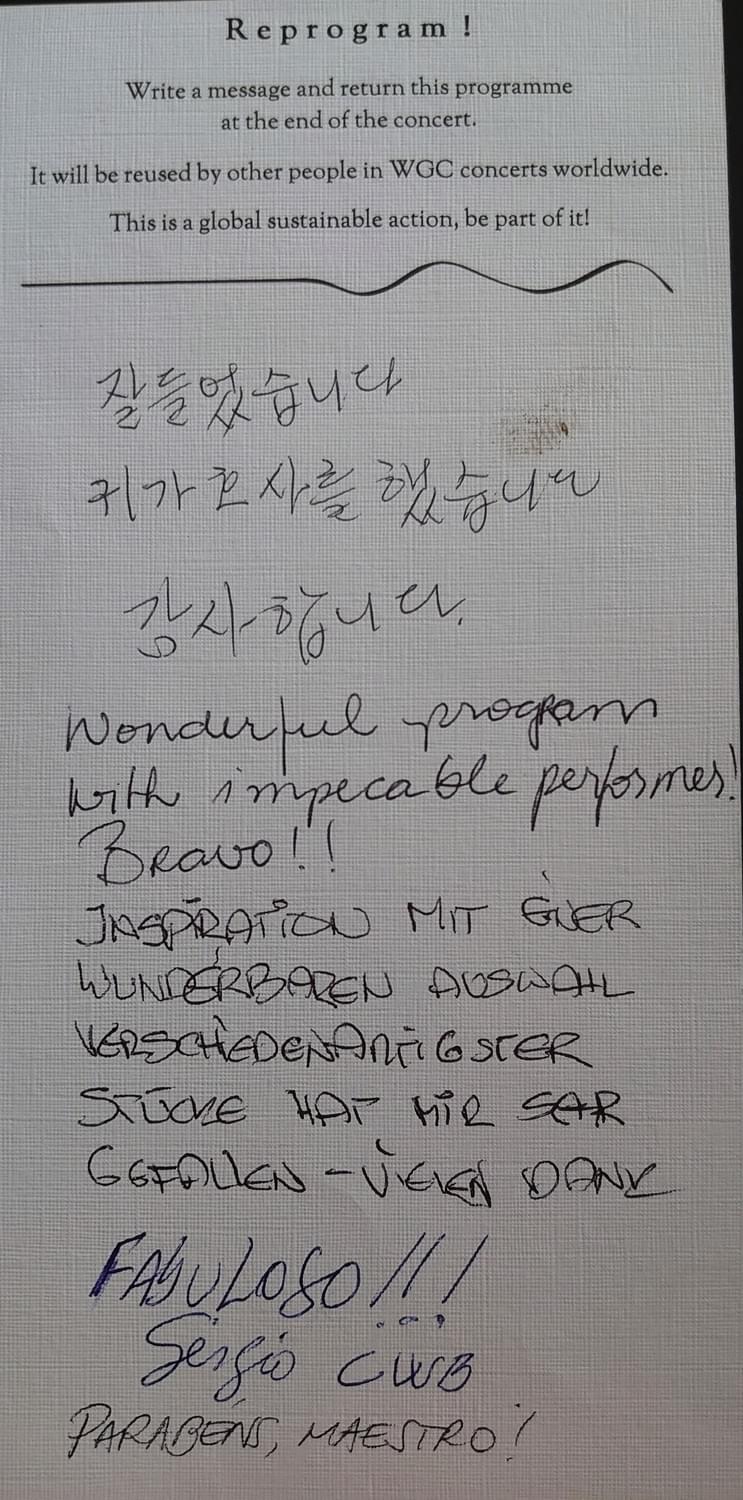 Reprogram!
Write a message and return this programme
at the end of the concert.
It will be reused by other people in WGC concerts worldwide.
This is a global sustainable action, be part of it!
잘 들었습니다
귀가 호사를 했습니다
감사합니다.
Wonderful program
with impecable performes!
Bravo!!
INSPIRATION MIT EINER
WUNDERBAREN AUSWAHL
VERSCHIEDENARTIGSTER
STÜCKE HAT MIR SEHR
GEFALLEN - VIELEN DANK
FABULOSO!!!
Sérgio CWB
PARABÉNS, MAESTRO!